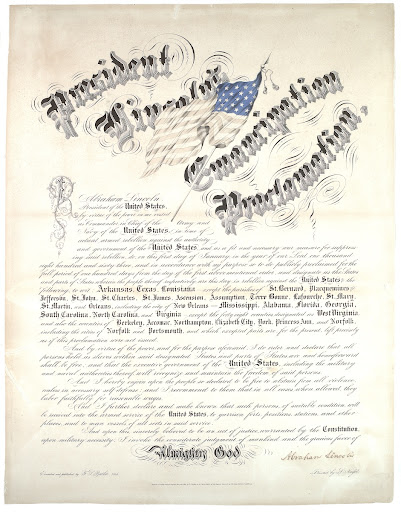 President
Lincoln's
Emancipation
Proclamation.
I Abraham Lincoln
President of the United States,
by virtue of the power in me vested
as Commander in Chief of the Army and
Navy of the United States, in time of
actual armed rebellion against the authority
and government of the United States, and as a fit and necessary war measure for suppress-
ing said rebellion, do, on this first day of January, in the year of our Lord one thousand
eight hundred and sixty three, and in accordance with my purpose so to do publicly proclaimed for the
full period of one hundred days from the day of the first above mentioned order, and designate as the States
and parts of States wherein the people thereof respectively are this day in rebellion against the United States the
following, to wit: Arkansas, Texas, Louisiana except the parishes of St. Bernard, Placquemines
Jefferson, St. John, St. Charles, St. James, Ascension, Assumption, Terre Bonne, Lafourche, St. Mary,
St. Martin, and Orleans, including the city of New Orleans Mississippi, Alabama, Florida, Georgia,
South Carolina, North Carolina, and Virginia except the forty eight counties designated as West Virginia
and also the counties of Berkeley, Accomac, Northampton, Elizabeth City, York, Princess Ann, and Norfolk,
including the cities of Norfolk and Portsmouth, and which excepted parts are, for the present, left precisely as
if this proclamation were not issued.
And by virtue of the power and for the purpose aforesaid, I do order and declare that all
persons held as slaves within said designated States and parts of States are and henceforward
shall be free, and that the executive government of the United States, including the military
and naval authorities thereof, will recognize and maintain the freedom of said persons.
And I hereby enjoin upon the people so declared to be free to abstain from all violence,
unless in necessary self defence, and I recommend to them that in all cases when allowed, they
labor faithfully for reasonable wages.
And I further declare and make known that such persons of suitable condition will
be received into the armed service of the United States, to garrison forts, positions, stations, and other
places, and to man vessels of all sorts in said service.
And upon this sincerely believed to be an act of justice, warranted by the Constitution,
upon military necessity, I invoke the considerate judgment of mankind and the gracious favor of
Almighty God
Abraham Lincoln